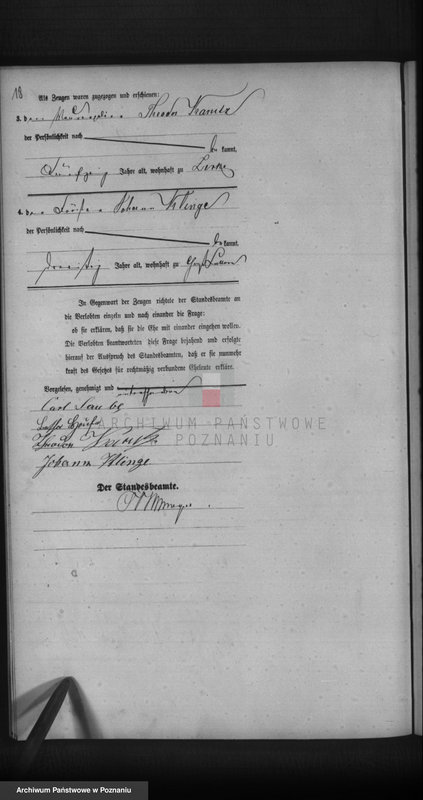 18
Als Zeugen waren zugezogen und erschienen:
3. der Theodor
der Persönlichkeit nach
be kannt,
Fünfzig Jahre alt, wohnhaft zu
4. der Johann Klinge
der Persönlichkeit nach
be kannt,
dreißig Jahre alt, wohnhaft zu
In Gegenwart der Zeugen richtete der Standesbeamte an
die Verlobten einzeln und nach einander die Frage:
ob sie erklären, daß sie die Ehe mit einander eingehen wollen.
Die Verlobten beantworteten diese Frage bejahend und erfolgte
hierauf der Ausspruch des Standesbeamten, daß er sie nunmehr
kraft des Gesetzes für rechtmäßig verbundene Eheleute erkläre.
Vorgelesen, genehmigt und unterschrieben
Carl
ARCHIWUM PAŃSTWOWE
Theodor
W POZNANIU
Johann Klinge
Der Standesbeamte.
Archiwum Państwowe w Poznaniu